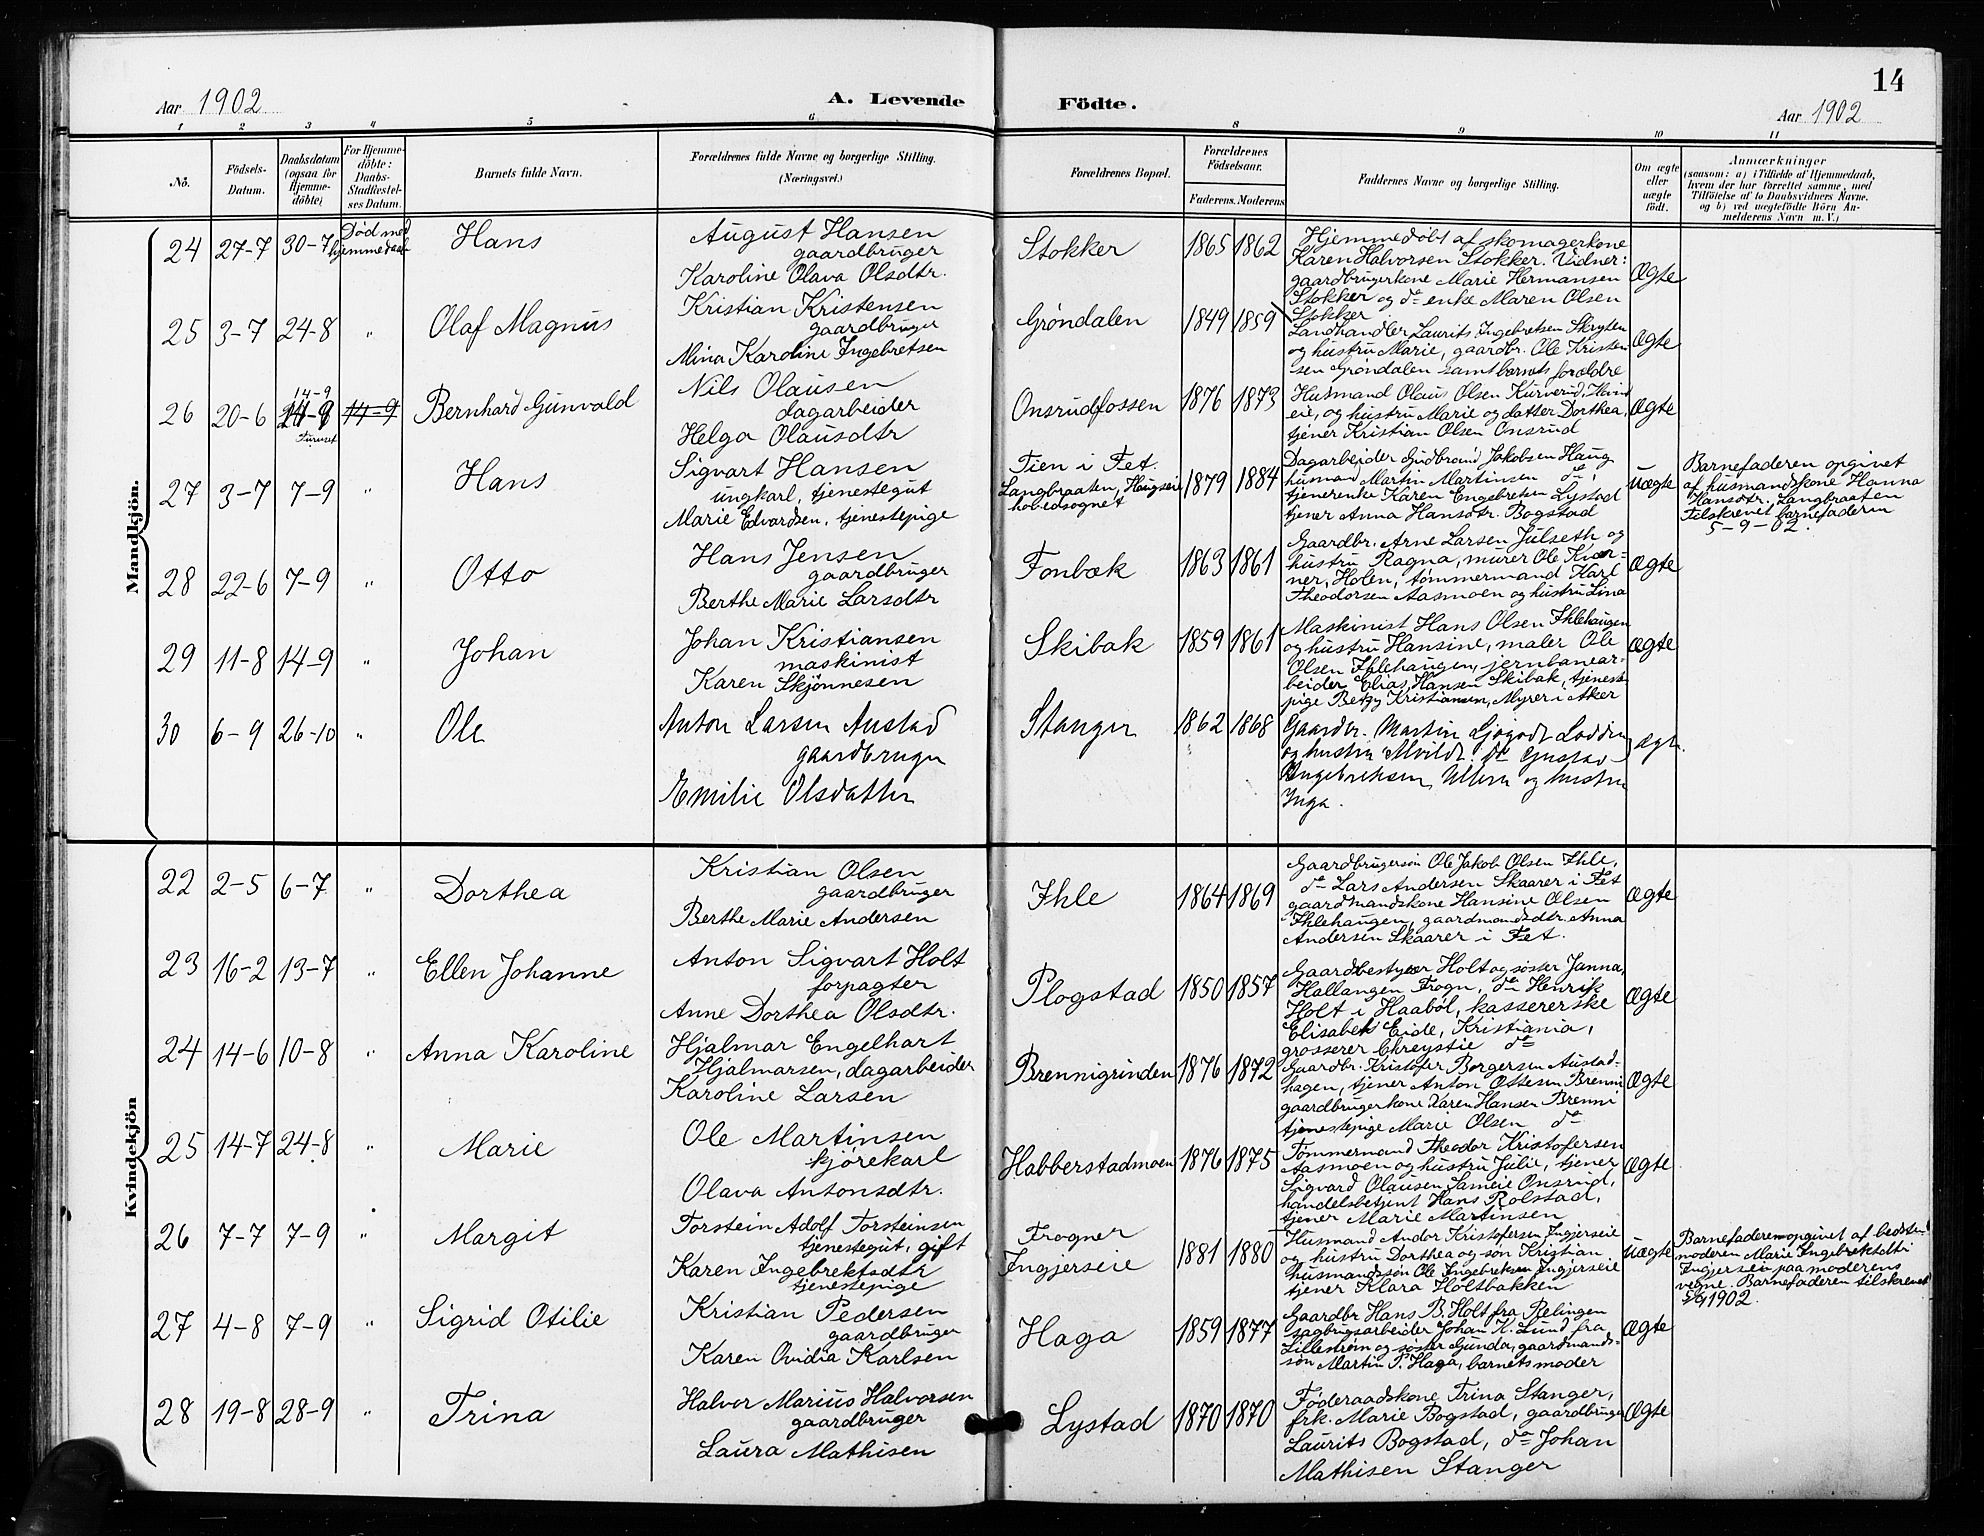 14
Aar 1902
A. Levende Födte.
Aar 1902
1 2 3 4 5 6 8 9 10 11
No.
Födsels-Datum.
Daabsdatum (ogsaa for Hjemme-döbte)
For Hjemme-döbte: Daabs-Stadfæstel-ses Datum.
Barnets fulde Navn.
Forældrenes fulde Navne og borgerlige Stilling. (Næringsvei.)
Forældrenes Bopæl.
Forældrenes Födselsaar.
Faderens. Moderens
Faddernes Navne og borgerlige Stilling.
Om ægte eller uægte födt.
Anmærkninger
(saasom: a) i Tilfælde af Hjemmedaab,
hvem der har forrettet samme, med
Tilföielse af to Daabsvidners Navne.
og b) ved uægtefödte Börn An-
melderens Navn m. V.)
Mandkjön.
24 27-7 30-7 Død med hjemmedaab Hans
August Hansen
gaardbruger
Karoline Olava Olsdtr.
Stokker 1865 1862
Hjemmedøbt af skomagerkone
Karen Halvorsen Stokker. Vidner:
gaardbrugerkone Marie Hermansen
Stokker og do enke Maren Olsen
Stokker
Ægte
25 3-7 24-8 " Olaf Magnus
Kristian Kristensen
gaardbruger
Mina Karoline Ingebretsen
Grøndalen 1849 1859
Landhandler Laurits Ingebretsen Skryten
og hustru Marie, gaardbr. Ole Kristen
sen Grøndalen samt barnets forældre
Ægte
26 20-6 14-9 14-9 Bernhard Gunvald
Nils Olausen
dagarbeider
Helga Olausdtr
Onsrudfossen 1876 1873
Husmand Olaus Olsen Kurverud, Hvin
eie, og hustru Marie og datter Dorthea,
tjener Kristian Olsen Onsrud
Ægte
27 3-7 7-9 " Hans
Sigvart Hansen
ungkarl, tjenestegut
Marie Edvardsen, tjenestepige
Tien i Fet.
Langbraaten, Haugseie
hovedsognet
1879 1884
Dagarbeider Gudbrand Jakobsen Haug
husmand Martin Martinsen do,
tjenerenke Karen Engebretsen Lystad
tjener Anna Hansdtr. Bogstad
Uægte
Barnefaderen opgivet
af husmandskone Hanna
Hansdtr. Langbraaten
Tilskrevet barnefaderen
5-9-02.
28 22-6 7-9 " Otto
Hans Jensen
gaardbruger
Berthe Marie Larsdtr
Fonbæk 1863 1861
Gaardbr. Arne Larsen Julseth og
hustru Ragna, murer Ole Kvær-
ner, Holen, tømmermand Karl
Theodorsen Aasmoen og hustru Lina
Ægte
29 11-8 14-9 " Johan
Johan Kristiansen
maskinist
Karen Skjønnesen
Skibak 1859 1861
Maskinist Hans Olsen Ihlehaugen
og hustru Hansine, maler Ole
Olsen Ihlehaugen, jernbanear-
beider Elias Hansen Skibak, tjeneste
pige Betzy Kristiansen, Myrer i Aker
Ægte
30 6-9 26-10 " Ole
Anton Larsen Austad
gaardbruger
Emilie Olsdatter
Stanger 1862 1868
Gaardbr. Martin
og hustru do Gustav
Ingebretsen, og hustru
Inga.
Ægte
Kvindekjön
22 2-5 6-7 " Dorthea
Kristian Olsen
gaardbruger
Berthe Marie Andersen
Ihle 1864 1869
Gaardbrugersøn Ole Jakob Olsen Ihle,
do Lars Andersen Skaarer i Fet
gaardmandskone Hansine Olsen
Ihlehaugen, gaardmandsdtr. Anna
Andersen Skaarer i Fet.
Ægte
23 16-2 13-7 " Ellen Johanne
Anton Sigvart Holt
forpagter
Anne Dorthea Olsdtr.
Plogstad 1850 1857
Gaardbestyrer Holt og søster Janna,
Hallangen Frogn, do Henrik
Holt i Haabøl, kassererske
Elisabet Eide, Kristiania,
grosserer Chreystie do
Ægte
24 14-6 10-8 " Anna Karoline
Hjalmar Engelhart
Hjalmarsen, dagarbeider
Karoline Larsen
Brennigrinden 1876 1872
Gaardbr. Kristofer Borgersen Austad-
hagen, tjener Anton Ottesen Brenni
gaardbrugerkone Karen Hansen Brenni
tjenestepige Marie Olsen do
Ægte
25 14-7 24-8 " Marie
Ole Martinsen
kjørekarl
Olava Antonsdtr.
Habberstadmoen 1876 1875
Tømmermand Theodor Kristofersen
Aasmoen og hustru Julie, tjener
Sigvard Olausen Sameie Onsrud,
handelsbetjent Hans Rolstad,
tjener Marie Martinsen
Ægte
26 7-7 7-9 " Margit
Torstein Adolf Torsteinsen
tjenestegut, gift
Karen Ingebrektsdtr
tjenestepige
Frogner
Ingjerseie
1881 1880
Husmand Andor Kristofersen Ingjerseie
og hustru Dorthea og søn Kristian
husmandssøn Ole Ingebretsen Ingjerseie
tjener Klara Holtbakken
Uægte
Barnefaderen opgivet af bedste
moderen Marie Ingebrektdtr
Ingjerseie paa moderens
vegne. Barnefaderen tilskrevet
5/9 1902.
27 4-8 7-9 " Sigrid Otilie
Kristian Pedersen
gaardbruger
Karen Ovidia Karlsen
Haga 1859 1877
Gaardbr Hans B. Holt fra Rælingen
sagbrugsarbeider Johan K. Lund fra
Lillestrøm og søster Gunda, gaardmands-
søn Martin P. Haga, barnets moder
Ægte
28 19-8 28-9 " Trina
Halvor Marius Halvorsen
gaardbruger
Laura Mathisen
Lystad 1870 1870
Føderaadskone Trina Stanger,
frk. Marie Bogstad, gaardbruger
Laurits Bogstad, do Johan
Mathisen Stanger
Ægte